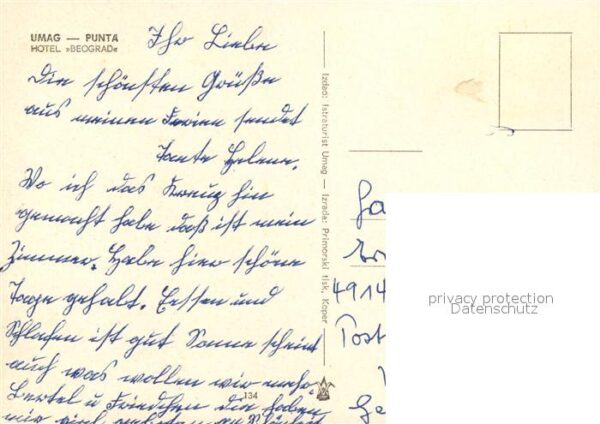 UMAG — PUNTA
HOTEL »BEOGRAD«
Ihr Lieben
Die schönsten Grüße
aus meinen Ferien sendet
Tante Helene.
Wo ich das Kreuz hin
gemacht habe daß ist mein
Zimmer. Habe hier schöne
Tage gehalt. Essen und
Schlafen ist gut Sonne scheint
auch was wollen wir mehr.
Bertel u Friedchen die haben
mir
134
Izdao: Istraturist Umag — Izrada: Primorski tisk, Koper
4914
Post
privacy protection
Datenschutz